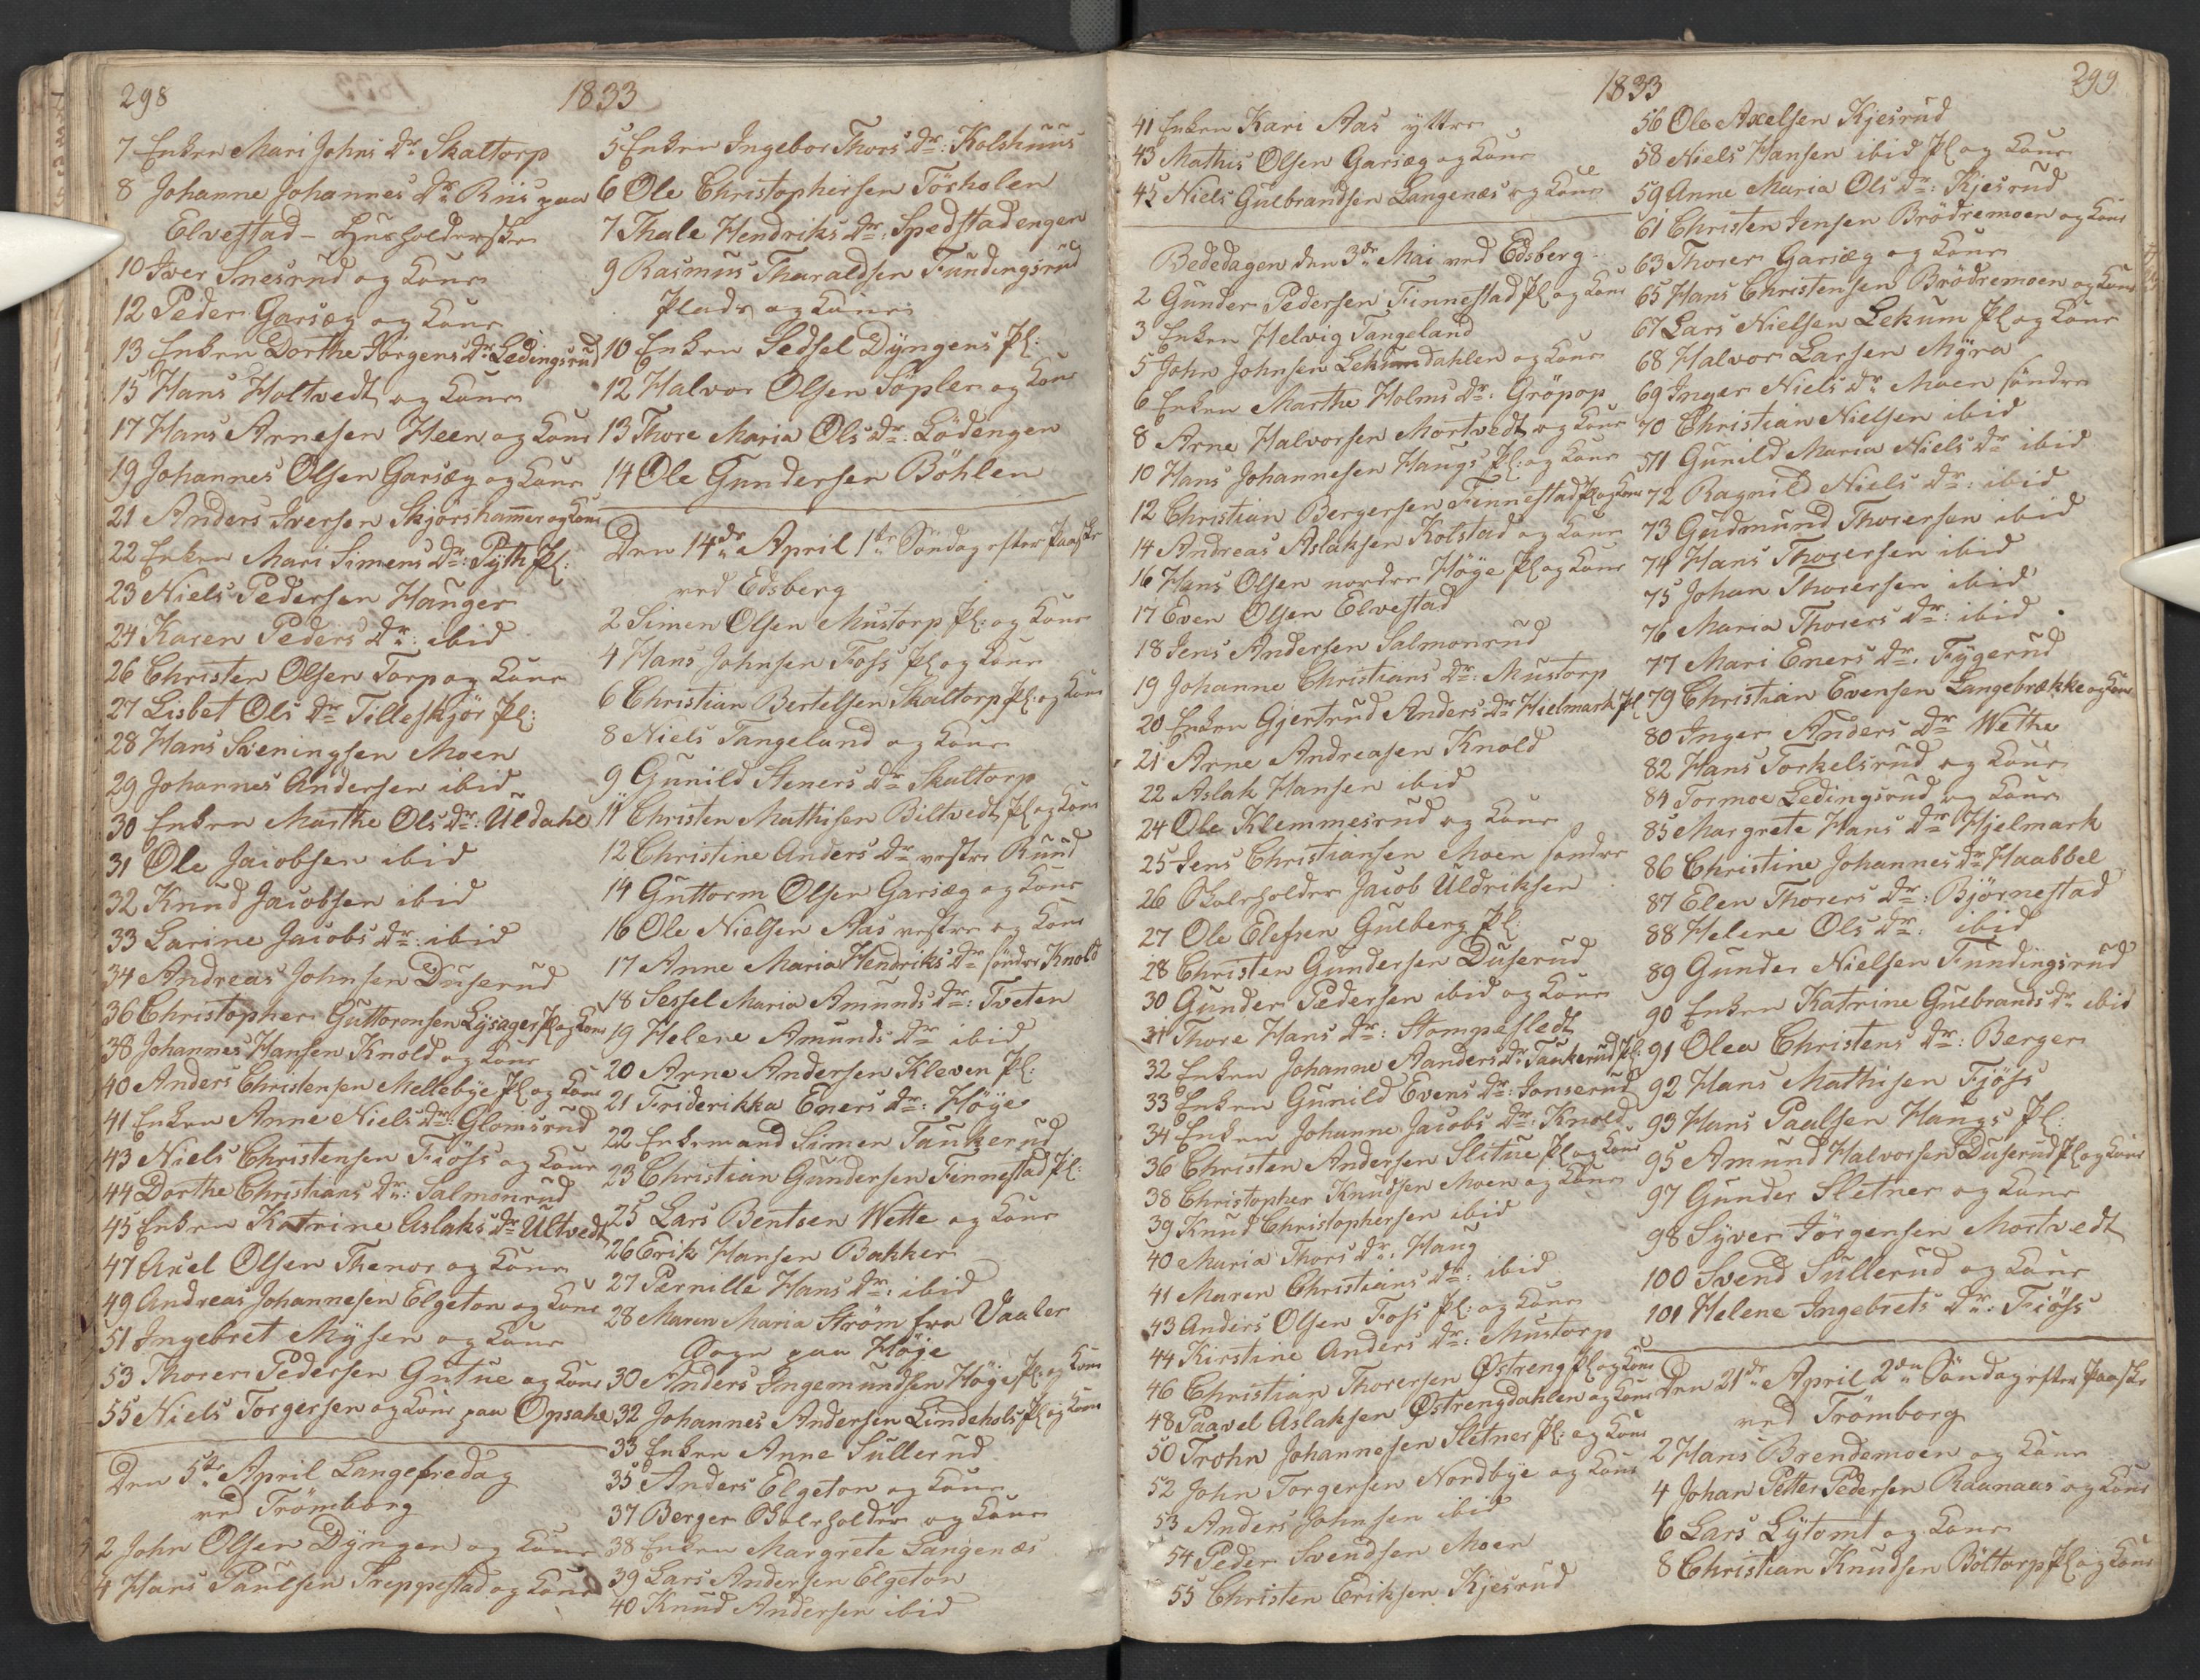 298
1833
7 Enken Mari Johns Dr: Skaltorp
8 Johanne Johannes Dr: Riis paa
Elvestad - Husholderske
10 Iver Snesrud og Kone
12 Peder Garsæg og Kone
13 Enken Dorthe Jörgens Dr: Ledingsrud
15 Hans Holtvedt og Kone
17 Hans Arnesen Heen og Kone
19 Johannes Olsen Garsæg og Kone
21 Anders Iversen Skjörshammer og Kone
22 Enken Mari Simens Dr: Pyth Pl:
23 Niels Pedersen Hauger
24 Karen Peders Dr: ibid
26 Christen Olsen Torp og Kone
27 Lisbet Ols Dr: Tilleskjör Pl:
28 Hans Sveningsen Moen
29 Johannes Andersen ibid
30 Enken Marthe Ols Dr: Uldahl
31 Ole Jacobsen ibid
32 Knud Jacobsen ibid
33 Larine Jacobs Dr: ibid
34 Andreas Johnsen Duserud
36 Christopher Guttormsen Lysager Pl og Kone
38 Johannes Hansen Knold og Kone
40 Anders Christensen Mellebye Pl og Kone
41 Enken Anne Niels Dr: Glomsrud
43 Niels Christensen Fiöss og Kone
44 Dorthe Christians Dr: Salmonrud
45 Enken Katrine Aslaks Dr: Ultvedt
47 Axel Olsen Thenor og Kone
49 Andreas Johannesen Elgeton og Kone
51 Ingebret Mysen og Kone
53 Thorer Pedersen Gutue og Kone
55 Niels Torgersen og Kone paa Opsahl
Den 5te April Langefredag
ved Trömborg
2 John Olsen Dyngen og Kone
4 Hans Paulsen Treppestad og Kone
5 Enken Ingebor Thors Dr: Kolshuus
6 Ole Christophersen Töskolen
7 Thale Hendriks Dr: Spedstadengen
9 Rasmus Tharaldsen Fundingsrud
Plads og Kone
10 Enken Sedsel Dyngens Pl:
12 Halvor Olsen Söpler og Kone
13 Thore Maria Ols Dr: Lödengen
14 Ole Gundersen Böhlen
Den 14de April 1ste Söndag efter Paaske
ved Edsberg
2 Simen Olsen Mustorp Pl: og Kone
4 Hans Johnsen Foss Pl og Kone
6 Christian Bertelsen Skaltorp Pl: og Kone
8 Niels Tangeland og Kone
9 Gunild Steners Dr: Skaltorp
11 Christen Mathisen Biltvedt Pl og Kone
12 Christine Anders Dr: vestre Ruud
14 Guttorm Olsen Garsæg og Kone
16 Ole Nielsen Aas vestre og Kone
17 Anne Maria Hendriks Dr: söndre Knold
18 Sessel Maria Amunds Dr: Tveten
19 Helene Amunds Dr: ibid
20 Arne Andersen Kleven Pl:
21 Friderikka Eners Dr: Höye
22 Enkemand Simen Taukerud
23 Christian Gundersen Finnestad Pl:
25 Lars Bentsen Wette og Kone
26 Erik Hansen Bakker
27 Pernille Hans Dr: ibid
28 Maren Maria Ström fra Vaaler
Sogn paa Höje
30 Anders Ingemundsen Höge Pl: og Kone
32 Johannes Andersen Lindehols Pl og Kone
33 Enken Anne Sullerud
35 Anders Elgeton og Kone
37 Berger Skoleholder og Kone
38 Enken Margrete Langenæs
39 Lars Andersen Elgeton
40 Knud Andersen ibid
1833
299
41 Enken Kari Aas yttre
43 Mathis Olsen Garsæg og Kone
45 Niels Gulbrandsen Langenæs og Kone
Bededagen den 3de Mai ved Edsberg
2 Gunder Pedersen Finnestad Pl og Kone
3 Enken Helvig Tangeland
5 John Johnsen Lekumdahlen og Kone
6 Enken Marthe Holms Dr: Gröpop
8 Arne Halvorsen Mortvedt og Kone
10 Hans Johannesen Haugs Pl: og Kone
12 Christian Bergersen Finnestad Pl og Kone
14 Andreas Aslaksen Kolstad og Kone
16 Hans Olsen nordre Höge Pl og Kone
17 Even Olsen Elvestad
18 Jens Andersen Salmonrud
19 Johanne Christians Dr: Mustorp
20 Enken Gjertrud Anders Dr: Hielmark Pl
21 Arne Andreasen Knold
22 Aslak Hansen ibid
24 Ole Klemmesrud og Kone
25 Jens Christiansen Moen söndre
26 Skoleholder Jacob Uldriksen
27 Ole Elefsen Gulberg Pl:
28 Christen Gundersen Duserud
30 Gunder Pedersen ibid og Kone
31 Thore Hans Dr: Stompesledt
32 Enken Johanne Aanders Dr: Taukerud Pl:
33 Enken Gunild Evens Dr: Jonserud
34 Enken Johanne Jacobs Dr: Knold
36 Christen Andersen Slitue Pl og Kone
38 Christopher Knudsen Moen og Kone
39 Knud Christophersen ibid
40 Maria Thors Dr: Haug
41 Maren Christians Dr: ibid
43 Anders Olsen Foss Pl: og Kone
44 Kirstine Anders Dr: Mustorp
46 Christian Thorersen Østreng Pl og Kone
48 Paavel Aslaksen Østrengdahlen og Kone
50 Trohn Johannesen Sletner Pl: og Kone
52 John Torgersen Nordbye og Kone
53 Anders Johnsen ibid
54 Peder Svendsen Moen
55 Christen Eriksen Kjesrud
56 Ole Axelsen Kjesrud
58 Niels Hansen ibid Pl og Kone
59 Anne Maria Ols Dr: Kjesrud
61 Christen Jensen Brödremoen og Kone
63 Thorer Garsæg og Kone
65 Hans Christensen Brödremoen og Kone
67 Lars Nielsen Lekum Pl og Kone
68 Halvor Larsen Myra
69 Inger Niels Dr: Moen söndre
70 Christian Nielsen ibid
71 Gunild Maria Niels Dr: ibid
72 Ragnild Niels Dr: ibid
73 Gudmund Thorersen ibid
74 Hans Thorersen ibid
75 Johan Thorersen ibid
76 Maria Thorers Dr: ibid
77 Mari Eners Dr: Fygerud
79 Christian Evensen Langebrække og Kone
80 Inger Anders Dr: Wethe
82 Hans Torkelsrud og Kone
84 Tormoe Ledingsrud og Kone
85 Margrete Hans Dr: Hjelmark
86 Christine Johannes Dr: Haabbel
87 Elen Thorers Dr: Björnestad
88 Helene Ols Dr: ibid
89 Gunder Nielsen Fundingsrud
90 Enken Katrine Gulbrands Dr: ibid
91 Olea Christens Dr: Berger
92 Hans Mathisen Fjöss
93 Hans Paalsen Haugs Pl:
95 Amund Halvorsen Duserud Pl og Kone
97 Gunder Sletner og Kone
98 Syver Jörgensen Mortvedt
100 Svend Sullerud og Kone
101 Helene Ingebrets Dr: Fiöss
Den 21de April 2den Söndag efter Paaske
ved Trömborg
2 Hans Brendemoen og Kone
4 Johan Petter Pedersen Raanaas og Kone
6 Lars Lytomt og Kone
8 Christian Knudsen Böltorp Pl og Kone